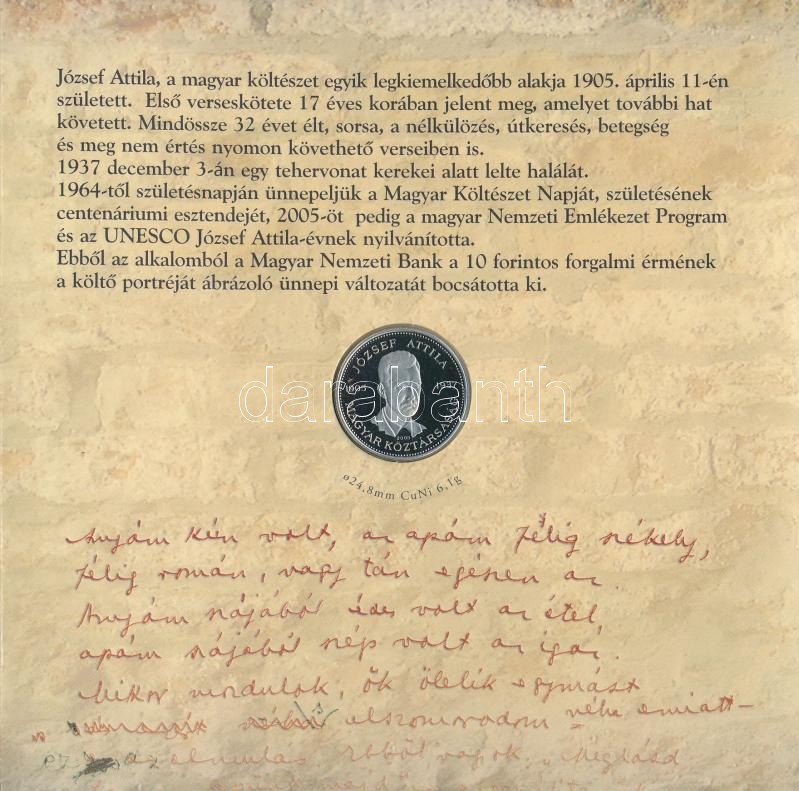 József Attila, a magyar költészet egyik legkiemelkedőbb alakja 1905. április 11-én
született. Első verseskötete 17 éves korában jelent meg, amelyet további hat
követett. Mindössze 32 évet élt, sorsa, a nélkülözés, útkeresés, betegség
és meg nem értés nyomon követhető verseiben is.
1937 december 3-án egy tehervonat kerekei alatt lelte halálát.
1964-től születésnapján ünnepeljük a Magyar Költészet Napját, születésének
centenáriumi esztendejét, 2005-öt pedig a magyar Nemzeti Emlékezet Program
és az UNESCO József Attila-évnek nyilvánította.
Ebből az alkalomból a Magyar Nemzeti Bank a 10 forintos forgalmi érmének
a költő portréját ábrázoló ünnepi változatát bocsátotta ki.
JÓZSEF ATTILA
1905 1937
darabanth
MAGYAR KÖZTÁRSASÁG
ø24,8mm CuNi 6,1g
Anyám kún volt, az apám félig székely,
félig román, vagy tán egészen az.
Anyám szájából édes volt az étel,
apám szájából szép volt az igaz.
Mikor mozdulok, ők ölelik egymást
elszomorodom néha emiatt –
ez az elmulás. Ebből vagyok. „Meglásd